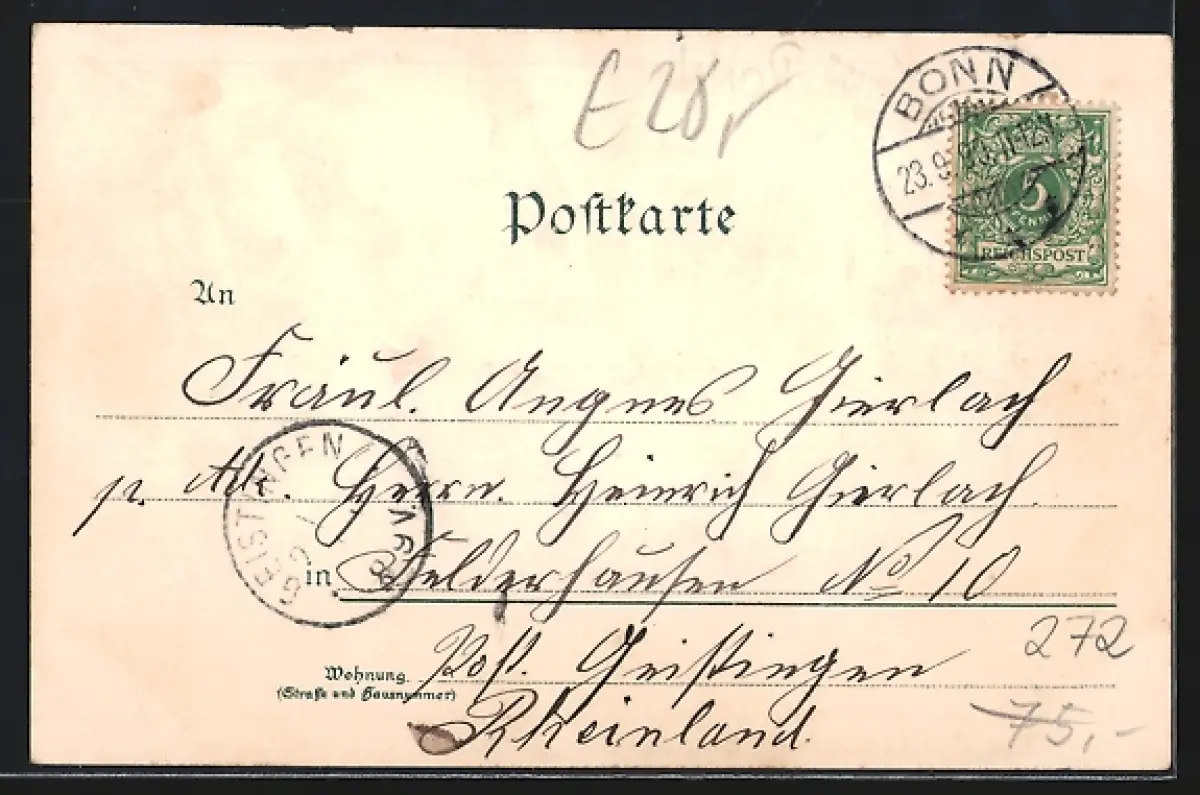 BONN
23.9. 11-12V.
5
REICHSPOST
Postkarte
An
Fräul. Angnes Gierlach
p. Adr. Herrn. Heinrich Gierlach.
in Felderhausen No 10
GEISTINGEN
272
Wohnung.
(Straße und Hausnummer)
Post. Geistingen
75,-
Rheinland.